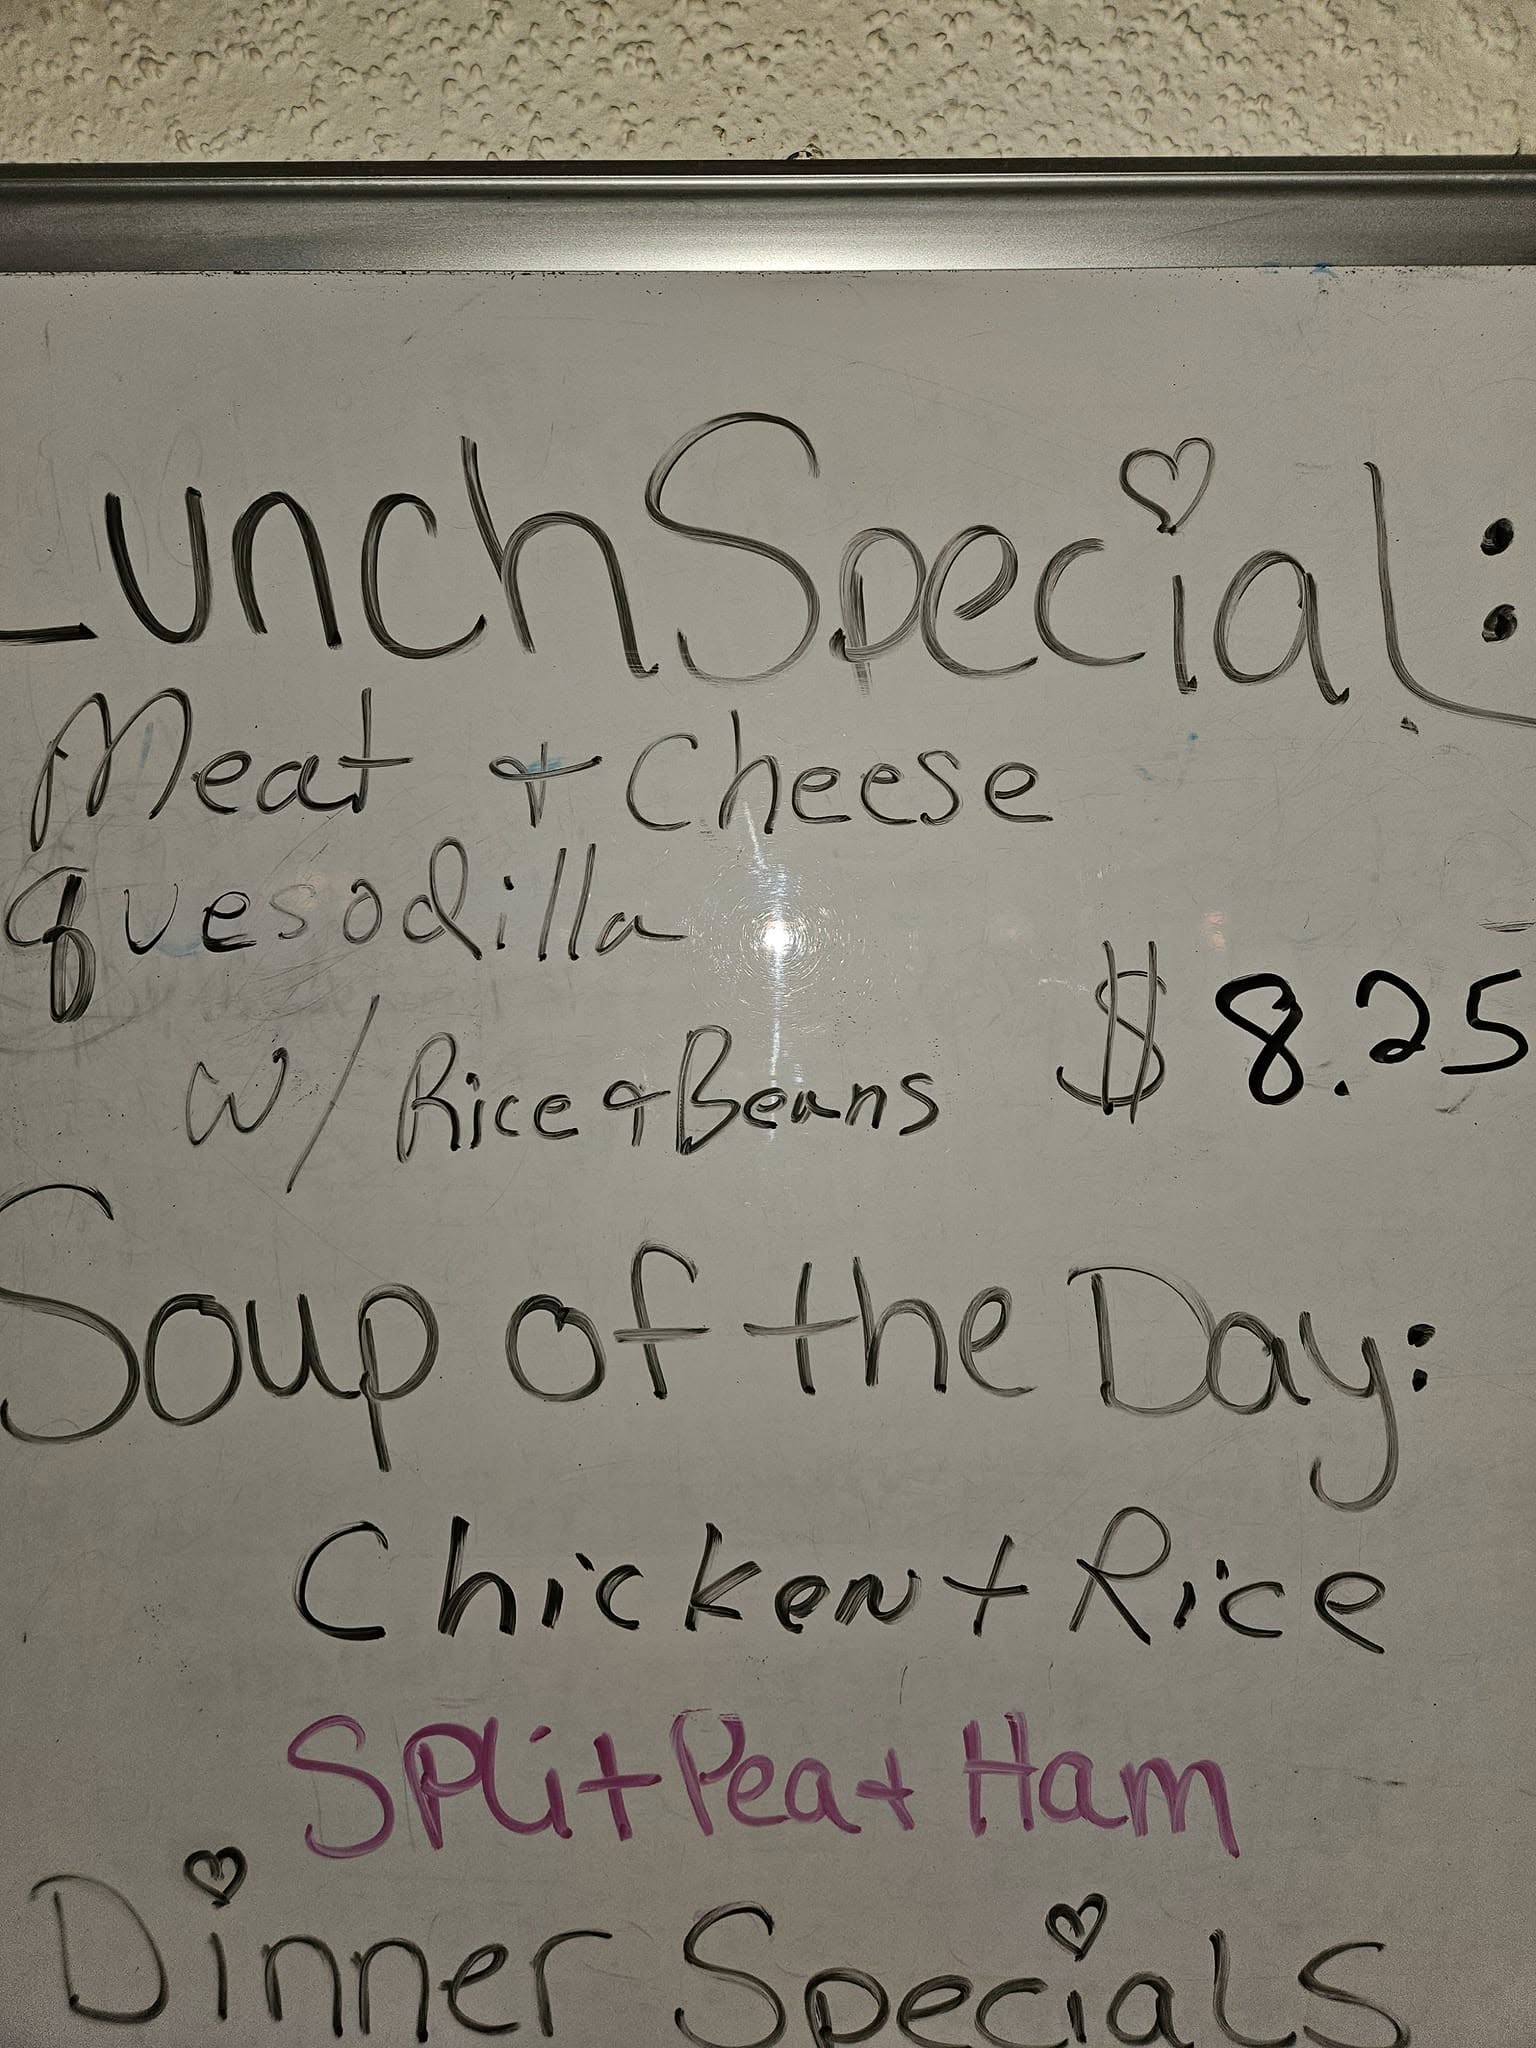 Lunch Special:
Meat + Cheese
quesodilla
w/ Rice + Beans $ 8.25
Soup of the Day:
Chicken + Rice
Split Pea + Ham
Dinner Specials